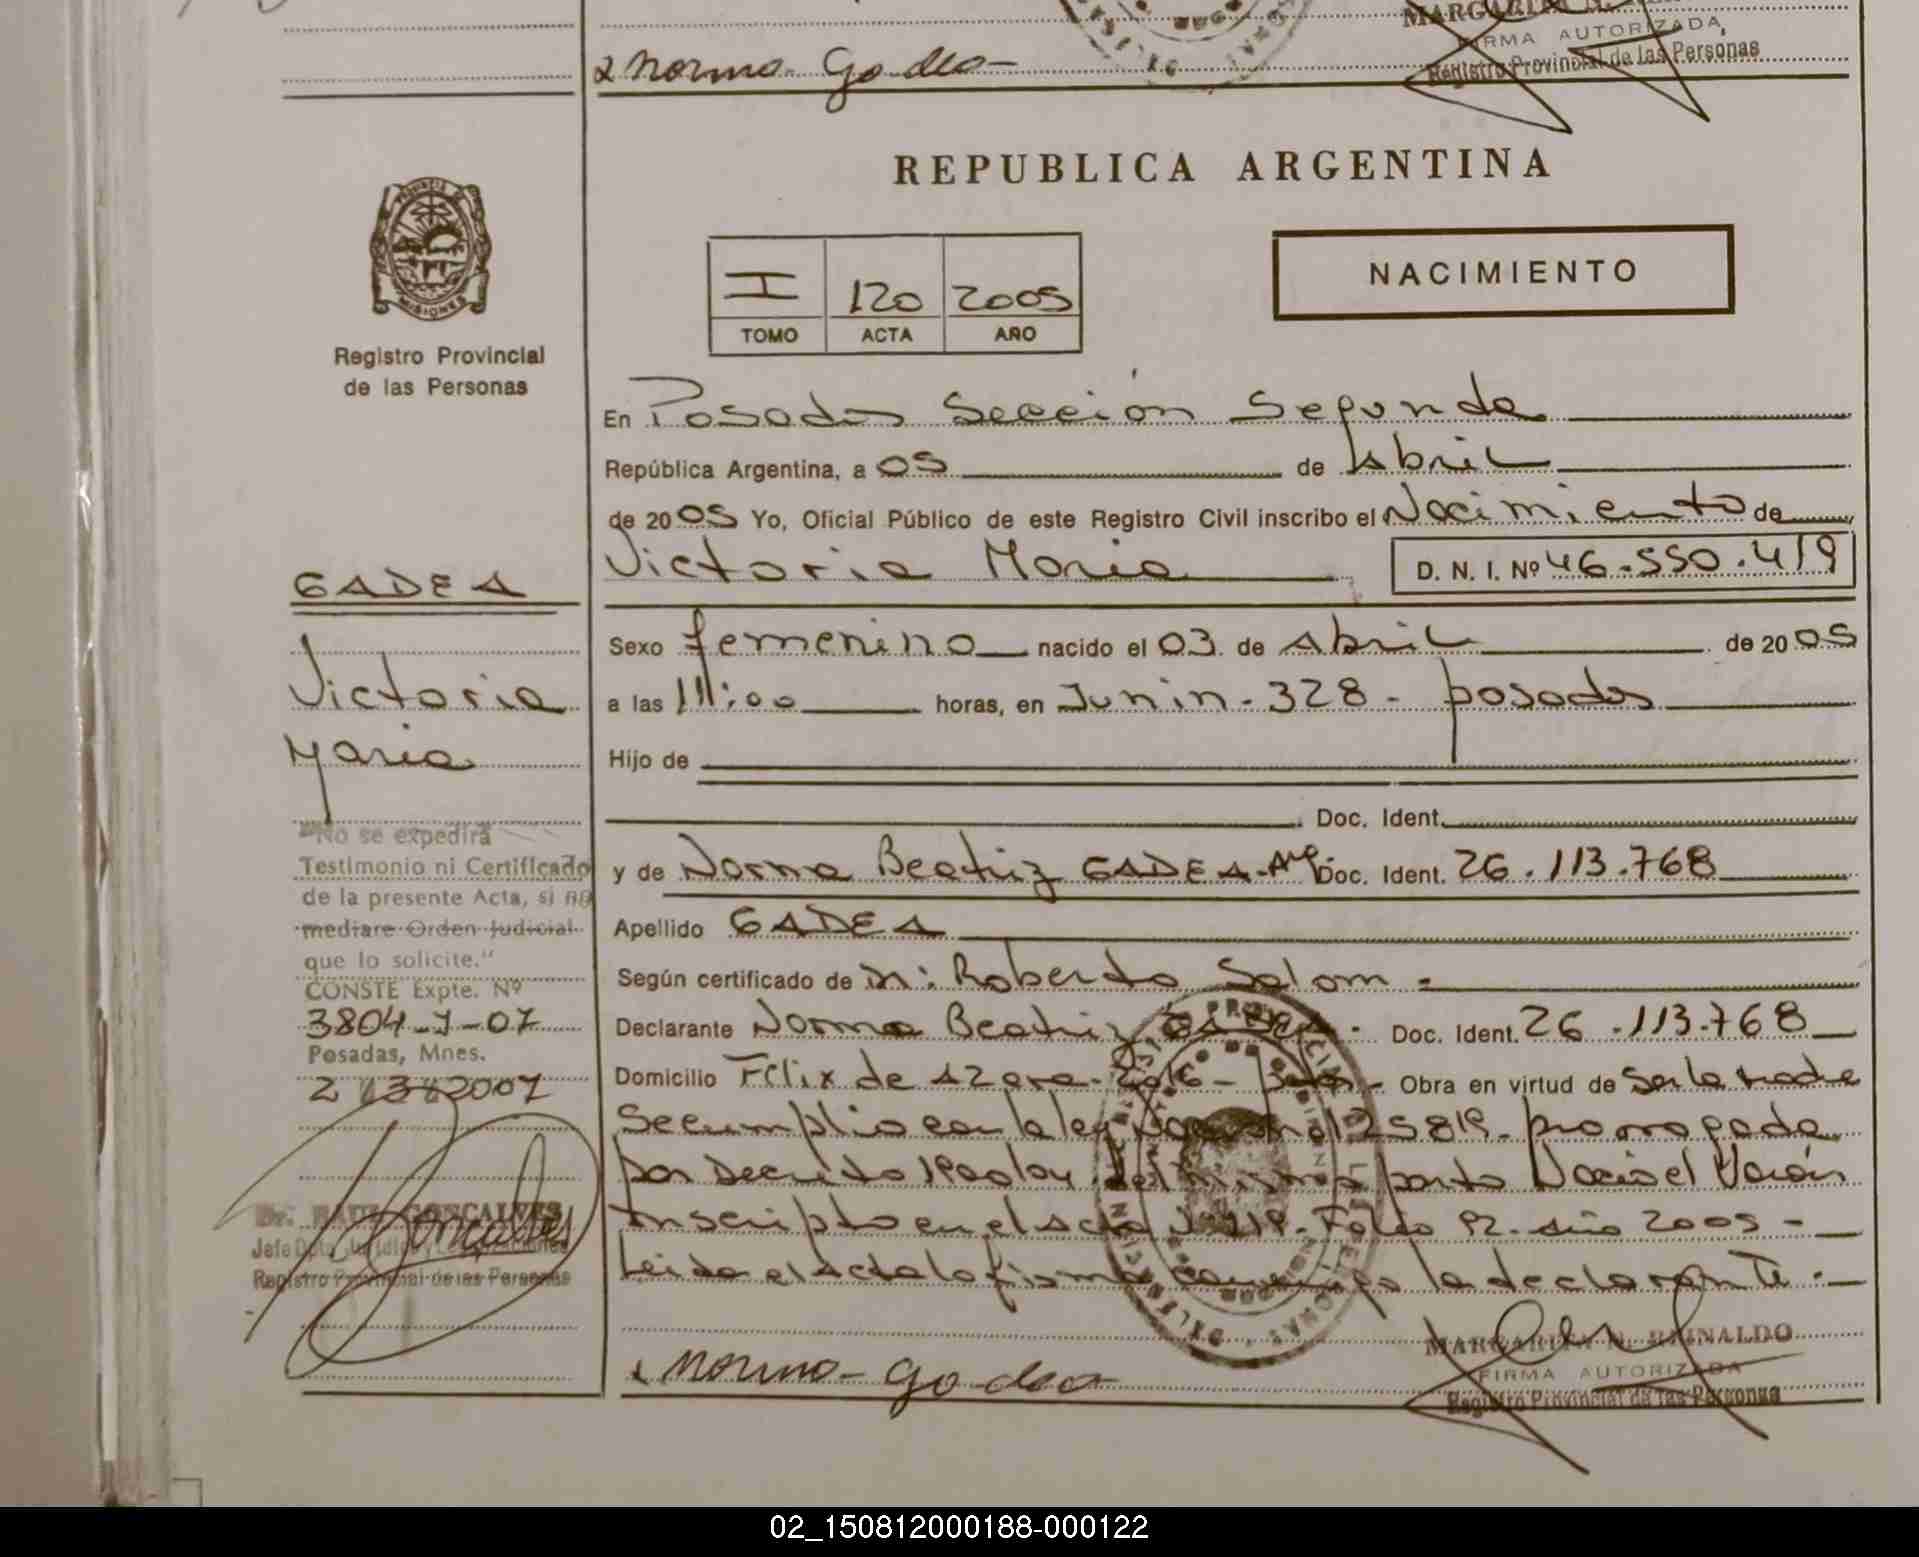 MARGARITA N.
FIRMA AUTORIZADA
Registro Provincial de las Personas
Norma Gadea
REPUBLICA ARGENTINA
I 120 2005
TOMO ACTA AÑO
NACIMIENTO
PROVINCIA DE MISIONES
Registro Provincial
de las Personas
En Posadas Sección Segunda
República Argentina, a 05 de Abril
de 2005 Yo, Oficial Público de este Registro Civil inscribo el Nacimiento de
Victoria Maria D. N. I. Nº 46.550.419
GADEA
Victoria
Maria
Sexo femenino nacido el 03 de Abril de 2005
a las 11:00 horas, en Junin - 328 - posadas
Hijo de
Doc. Ident.
y de Norma Beatriz GADEA - Arg. Doc. Ident. 26.113.768
Apellido GADEA
Según certificado de Dr: Roberto Salom -
Declarante Norma Beatriz GADEA - Doc. Ident. 26.113.768
Domicilio Félix de Azara - Obra en virtud de Ser la madre
Se cumplio con la ley Nacional 25819 - prorrogada
por Decreto del mismo parto Nacio el Varón
Inscripto en el acta 119 - Folio 92 - año 2005 -
Leida el acta la firma conmigo la declarante -
Norma - Gadea
MARGARITA N. REINALDO
FIRMA AUTORIZADA
Registro Provincial de las Personas
"No se expedirá
Testimonio ni Certificado
de la presente Acta, si no
mediare Orden Judicial
que lo solicite."
CONSTE Expte. Nº
3804-J-07
Posadas, Mnes.
2007
Dr. RAUL GONCALVES
Registro Provincial de las Personas
02_150812000188-000122